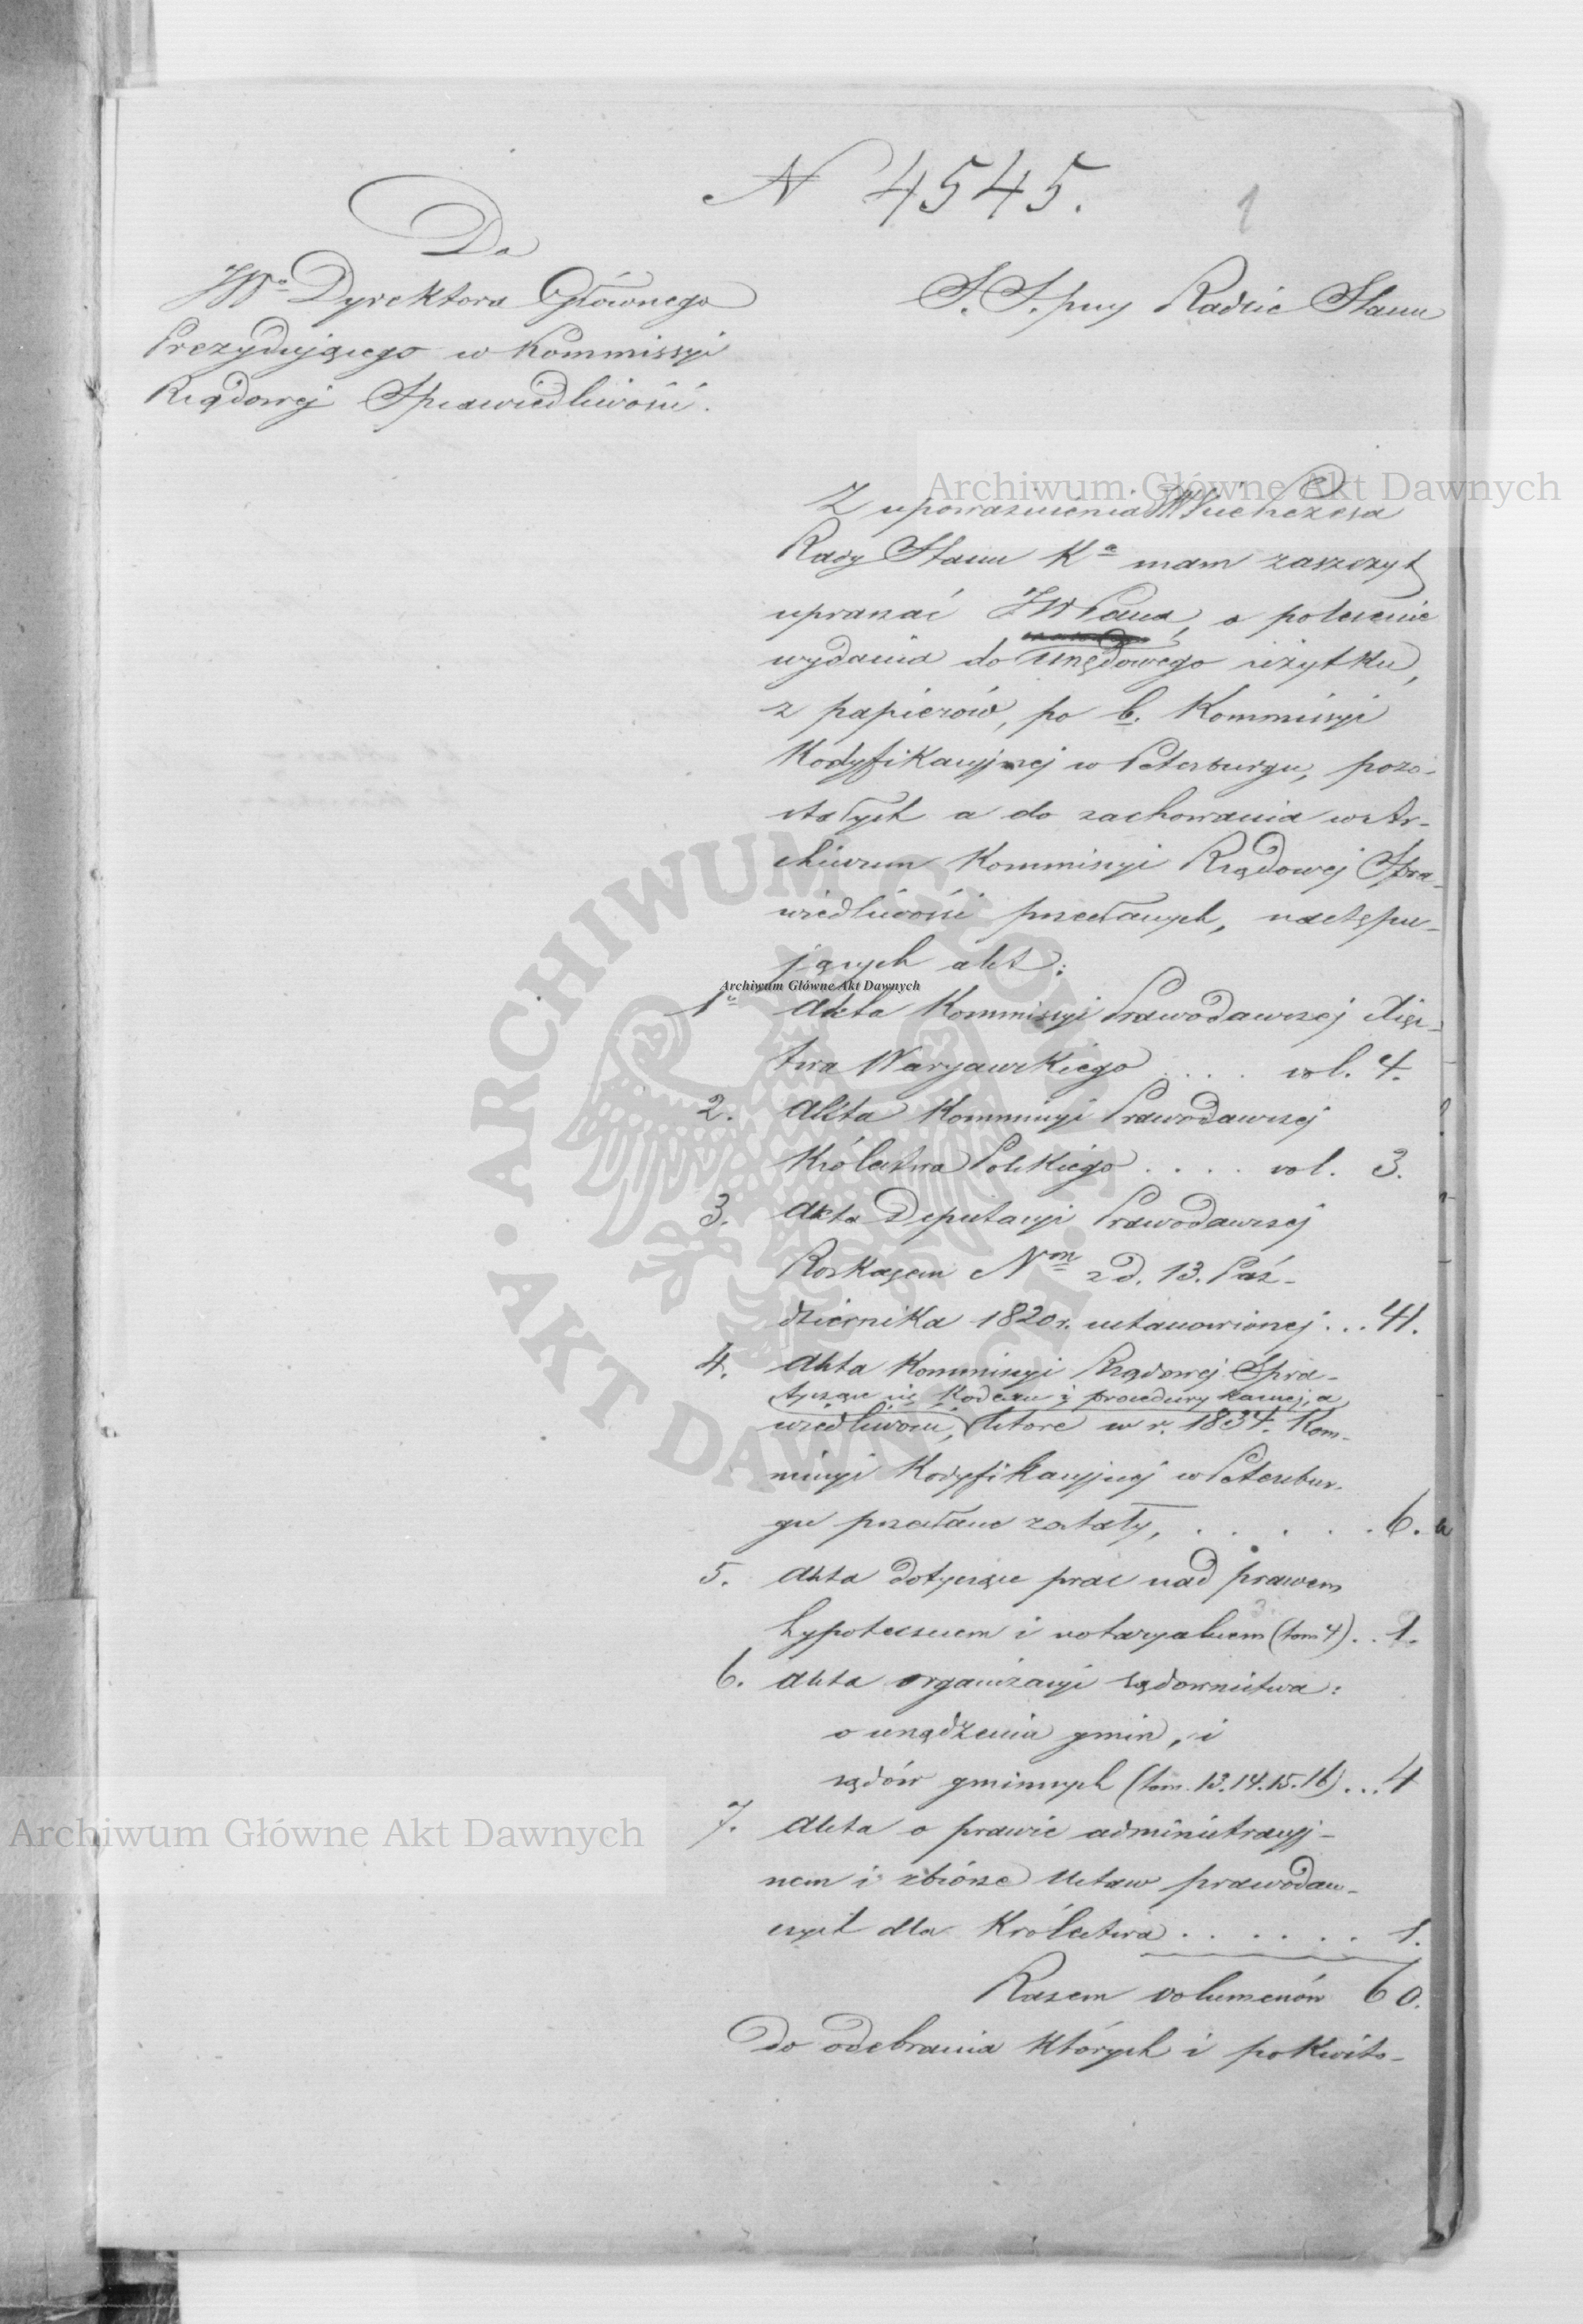 N 4545.
1
Do
JWo Dyrektora Głównego
Prezydującego w Kommissyi
Rządowej Sprawiedliwości.
S. S. przy Radzie Stanu
Z upoważnienia JW Vice Prezesa
Rady Stanu Ka mam zaszczyt
upraszać JW Pana, o polecenie
wydania do urzędowego użytku,
z papierów, po b. Kommissyi
Kodyfikacyjnej w Petersburgu, pozo-
stałych a do zachowania w Ar-
chiwum Kommissyi Rządowej Spra-
wiedliwości przesłanych, następu-
jących akt:
1o Akta Kommissyi Prawodawczej Xięz-
twa Warszawskiego .... vol. 4.
2. Akta Kommissyi Prawodawczej
Królestwa Polskiego .... vol. 3.
3. Akta Deputacyi Prawodawczej
Reskryptem Nm z d. 13. Paź-
dziernika 1820 r. ustanowionej ... 41.
4. Akta Kommissyi Rządowej Spra-
tyczące się Kodexu i procedury karnej, a
wiedliwości, które w r. 1834. Kom-
missyi Kodyfikacyjnej w Petersbur-
gu przesłane zostały, . . . . . 6.
5. Akta dotyczące prac nad prawem
hypotecznem i notaryalnem (tom 4) .. 1.
6. Akta organizacyi sądownictwa:
o urządzenia gmin, i
sądów gminnych (tom. 13. 14. 15. 16) ... 4
7. Akta o prawie administracyj-
nem i zbiorze Ustaw prawodaw-
czych dla Królestwa . . . . . . 1.
Razem volumenów 60.
Do odebrania których i pokwito-
Archiwum Główne Akt Dawnych
Archiwum Główne Akt Dawnych
Archiwum Główne Akt Dawnych
ARCHIWUM GŁÓWNE AKT DAWNYCH